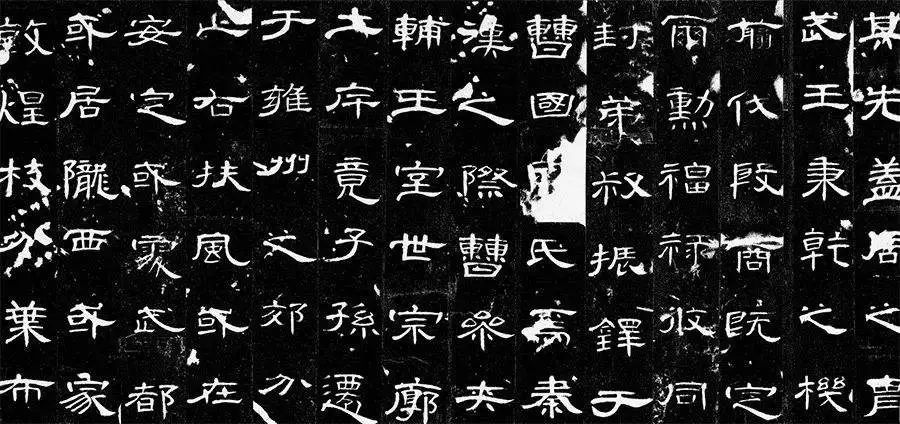 其先蓋周之胄
武王秉乾之機
翦伐殷商既定
爾勳福祿攸同
封弟叔振鐸于
曹國因氏焉秦
漢之際曹參夾
輔王室世宗廓
土斥竟子孫遷
于雍州之郊分
止右扶風或在
安定或處武都
或居隴西或家
敦煌枝分葉布